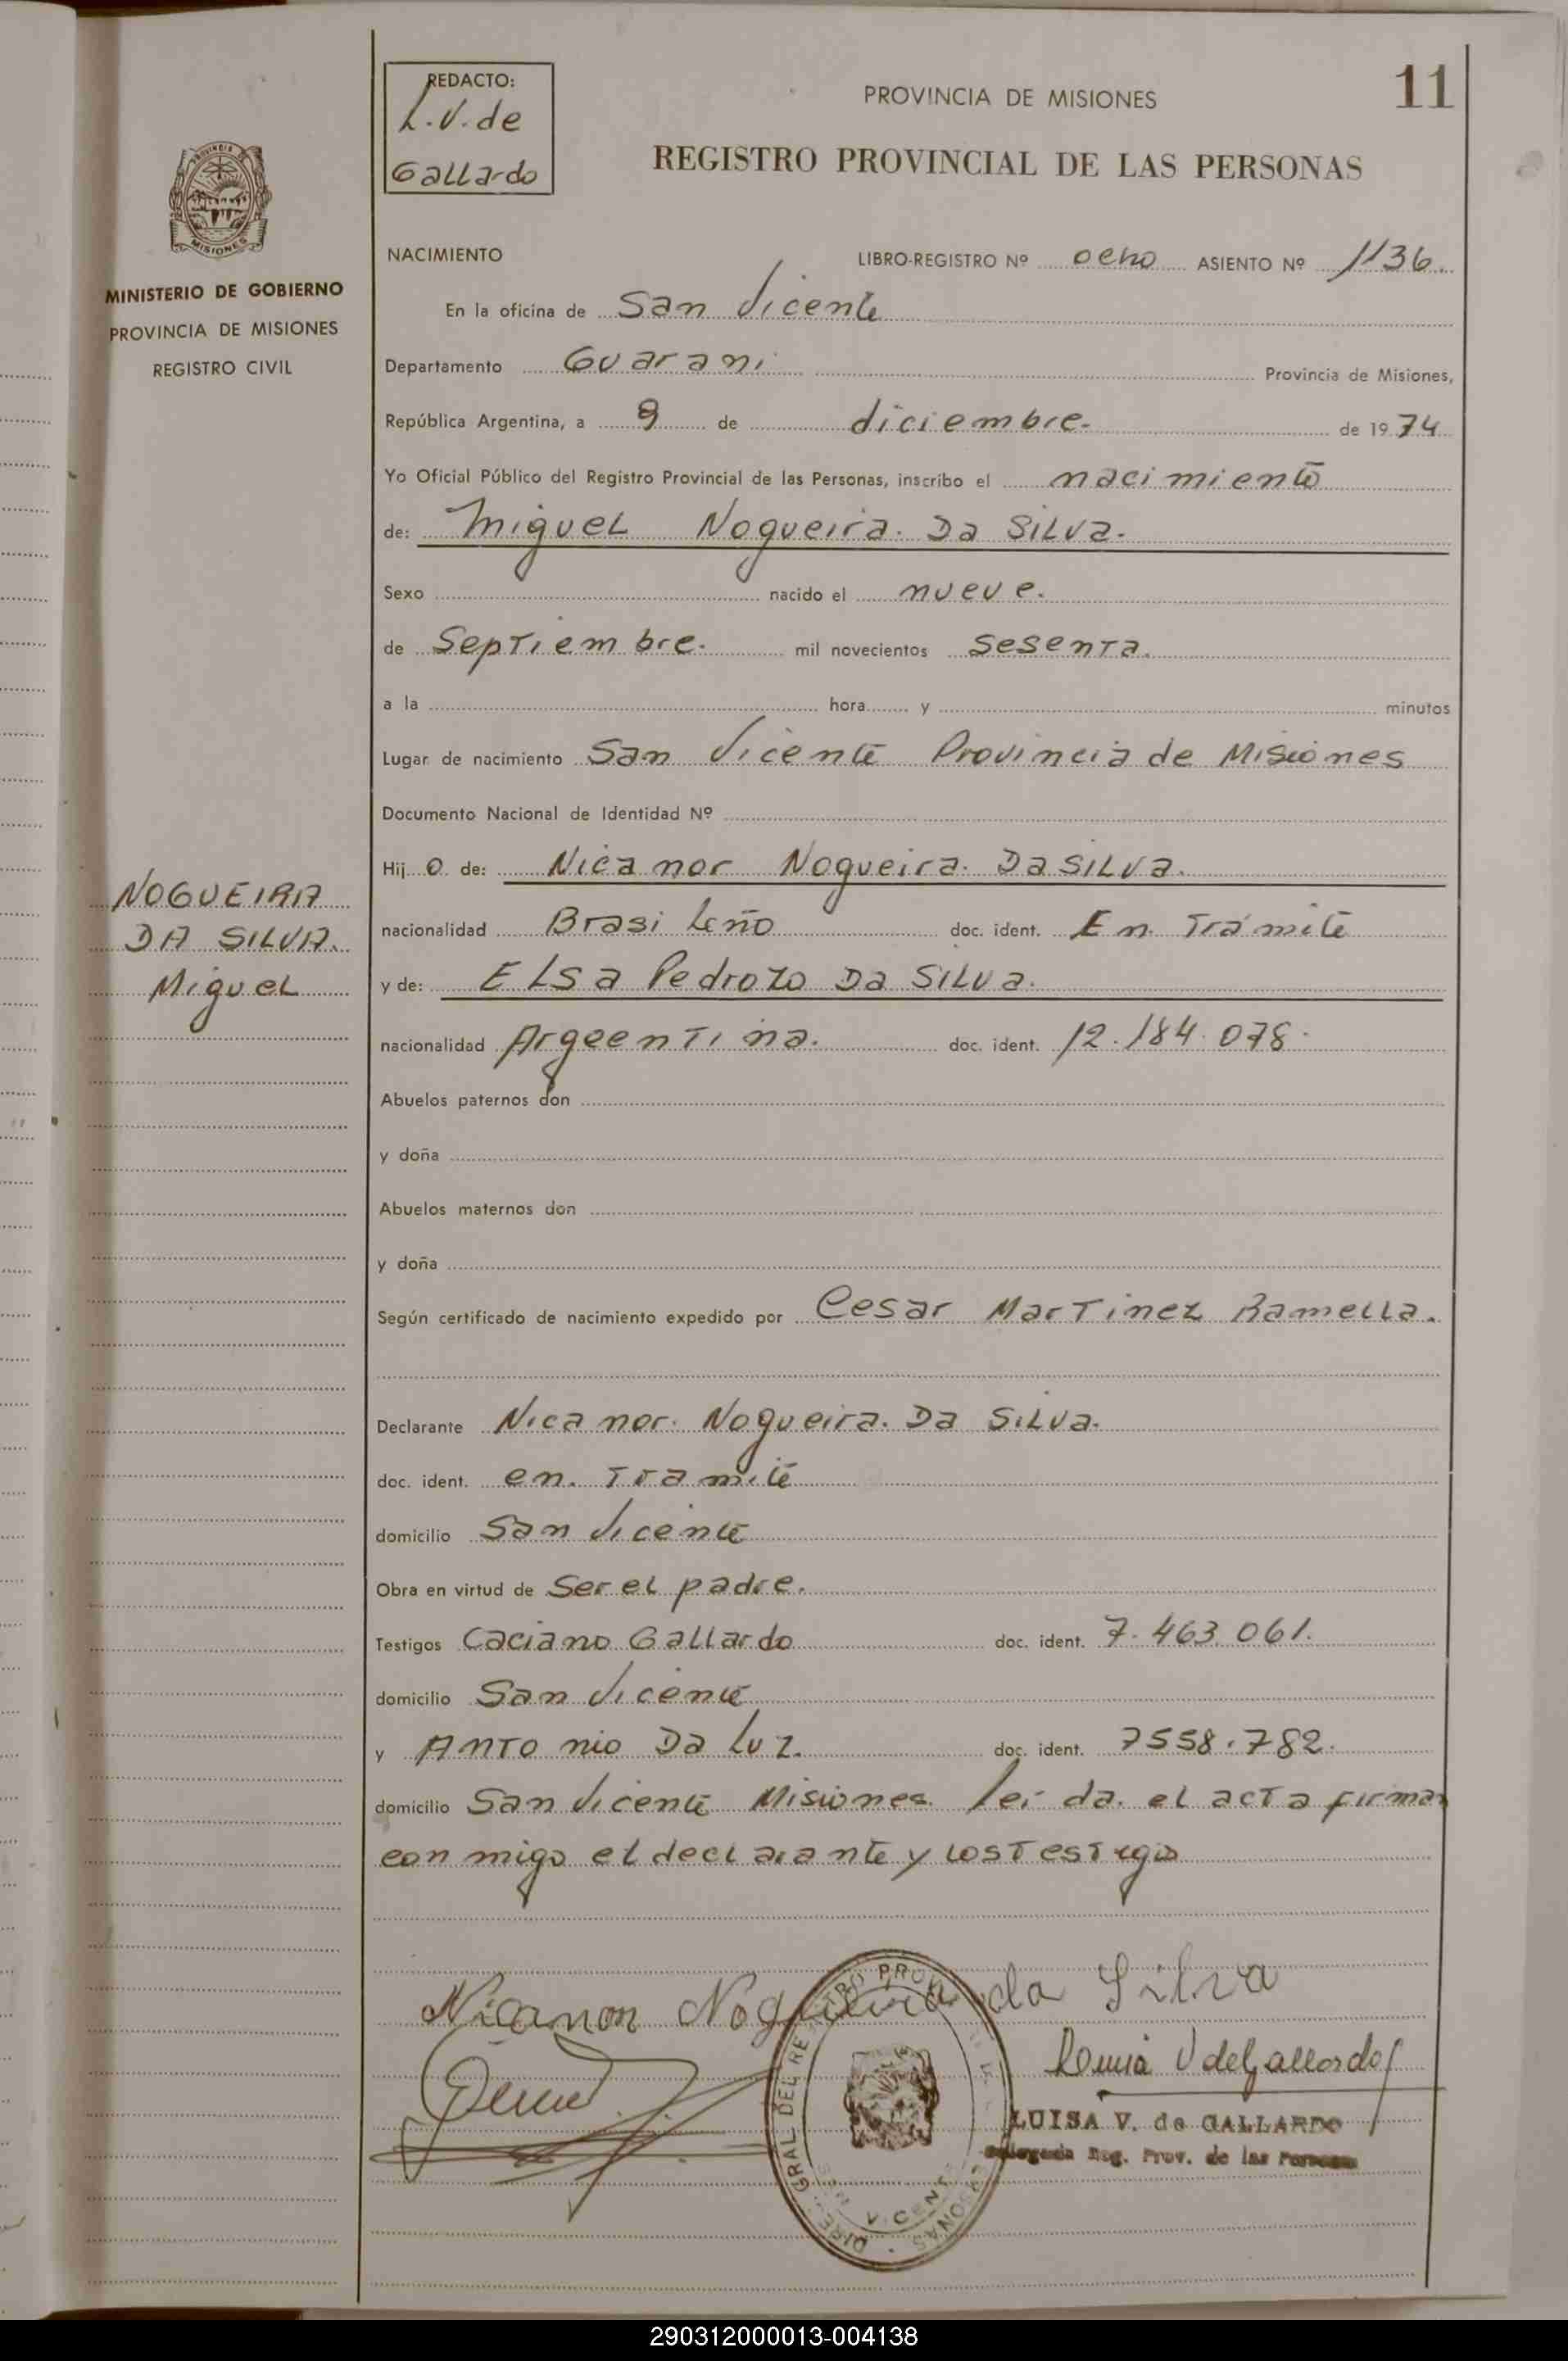 11
REDACTO:
L.V. de
Gallardo
PROVINCIA DE MISIONES
REGISTRO PROVINCIAL DE LAS PERSONAS
PROVINCIA DE
MISIONES
MINISTERIO DE GOBIERNO
PROVINCIA DE MISIONES
REGISTRO CIVIL
NACIMIENTO LIBRO-REGISTRO Nº ocho ASIENTO Nº 1136.
En la oficina de San Vicente
Departamento Guarani Provincia de Misiones,
República Argentina, a 9 de diciembre. de 1974
Yo Oficial Público del Registro Provincial de las Personas, inscribo el nacimiento
de: Miguel Nogueira. Da Silva.
Sexo nacido el nueve.
de Septiembre. mil novecientos sesenta.
a la hora y minutos
Lugar de nacimiento San Vicente Provincia de Misiones
Documento Nacional de Identidad Nº
Hijo de: Nicanor Nogueira. Da Silva.
nacionalidad Brasileño doc. ident. En Trámite
y de: Elsa Pedrozo Da Silva.
nacionalidad Argeentina. doc. ident. 12.184.078.
Abuelos paternos don
y doña
Abuelos maternos don
y doña
Según certificado de nacimiento expedido por Cesar Martinez Ramella.
Declarante Nicanor. Nogueira. Da Silva.
doc. ident. en. Tramite
domicilio San Vicente
Obra en virtud de Ser el padre.
Testigos Caciano Gallardo doc. ident. 7.463.061.
domicilio San Vicente
y Antonio Da Luz. doc. ident. 7558.782.
domicilio San Vicente Misiones. leida. el acta firman
conmigo el declarante y los Testigos
NOGUEIRA
DA SILVA.
Miguel
Nicanor Nogueira da Silva
Luisa V de Gallardo
LUISA V. de GALLARDO
Delegada Reg. Prov. de las Personas
SAN VICENTE
290312000013-004138